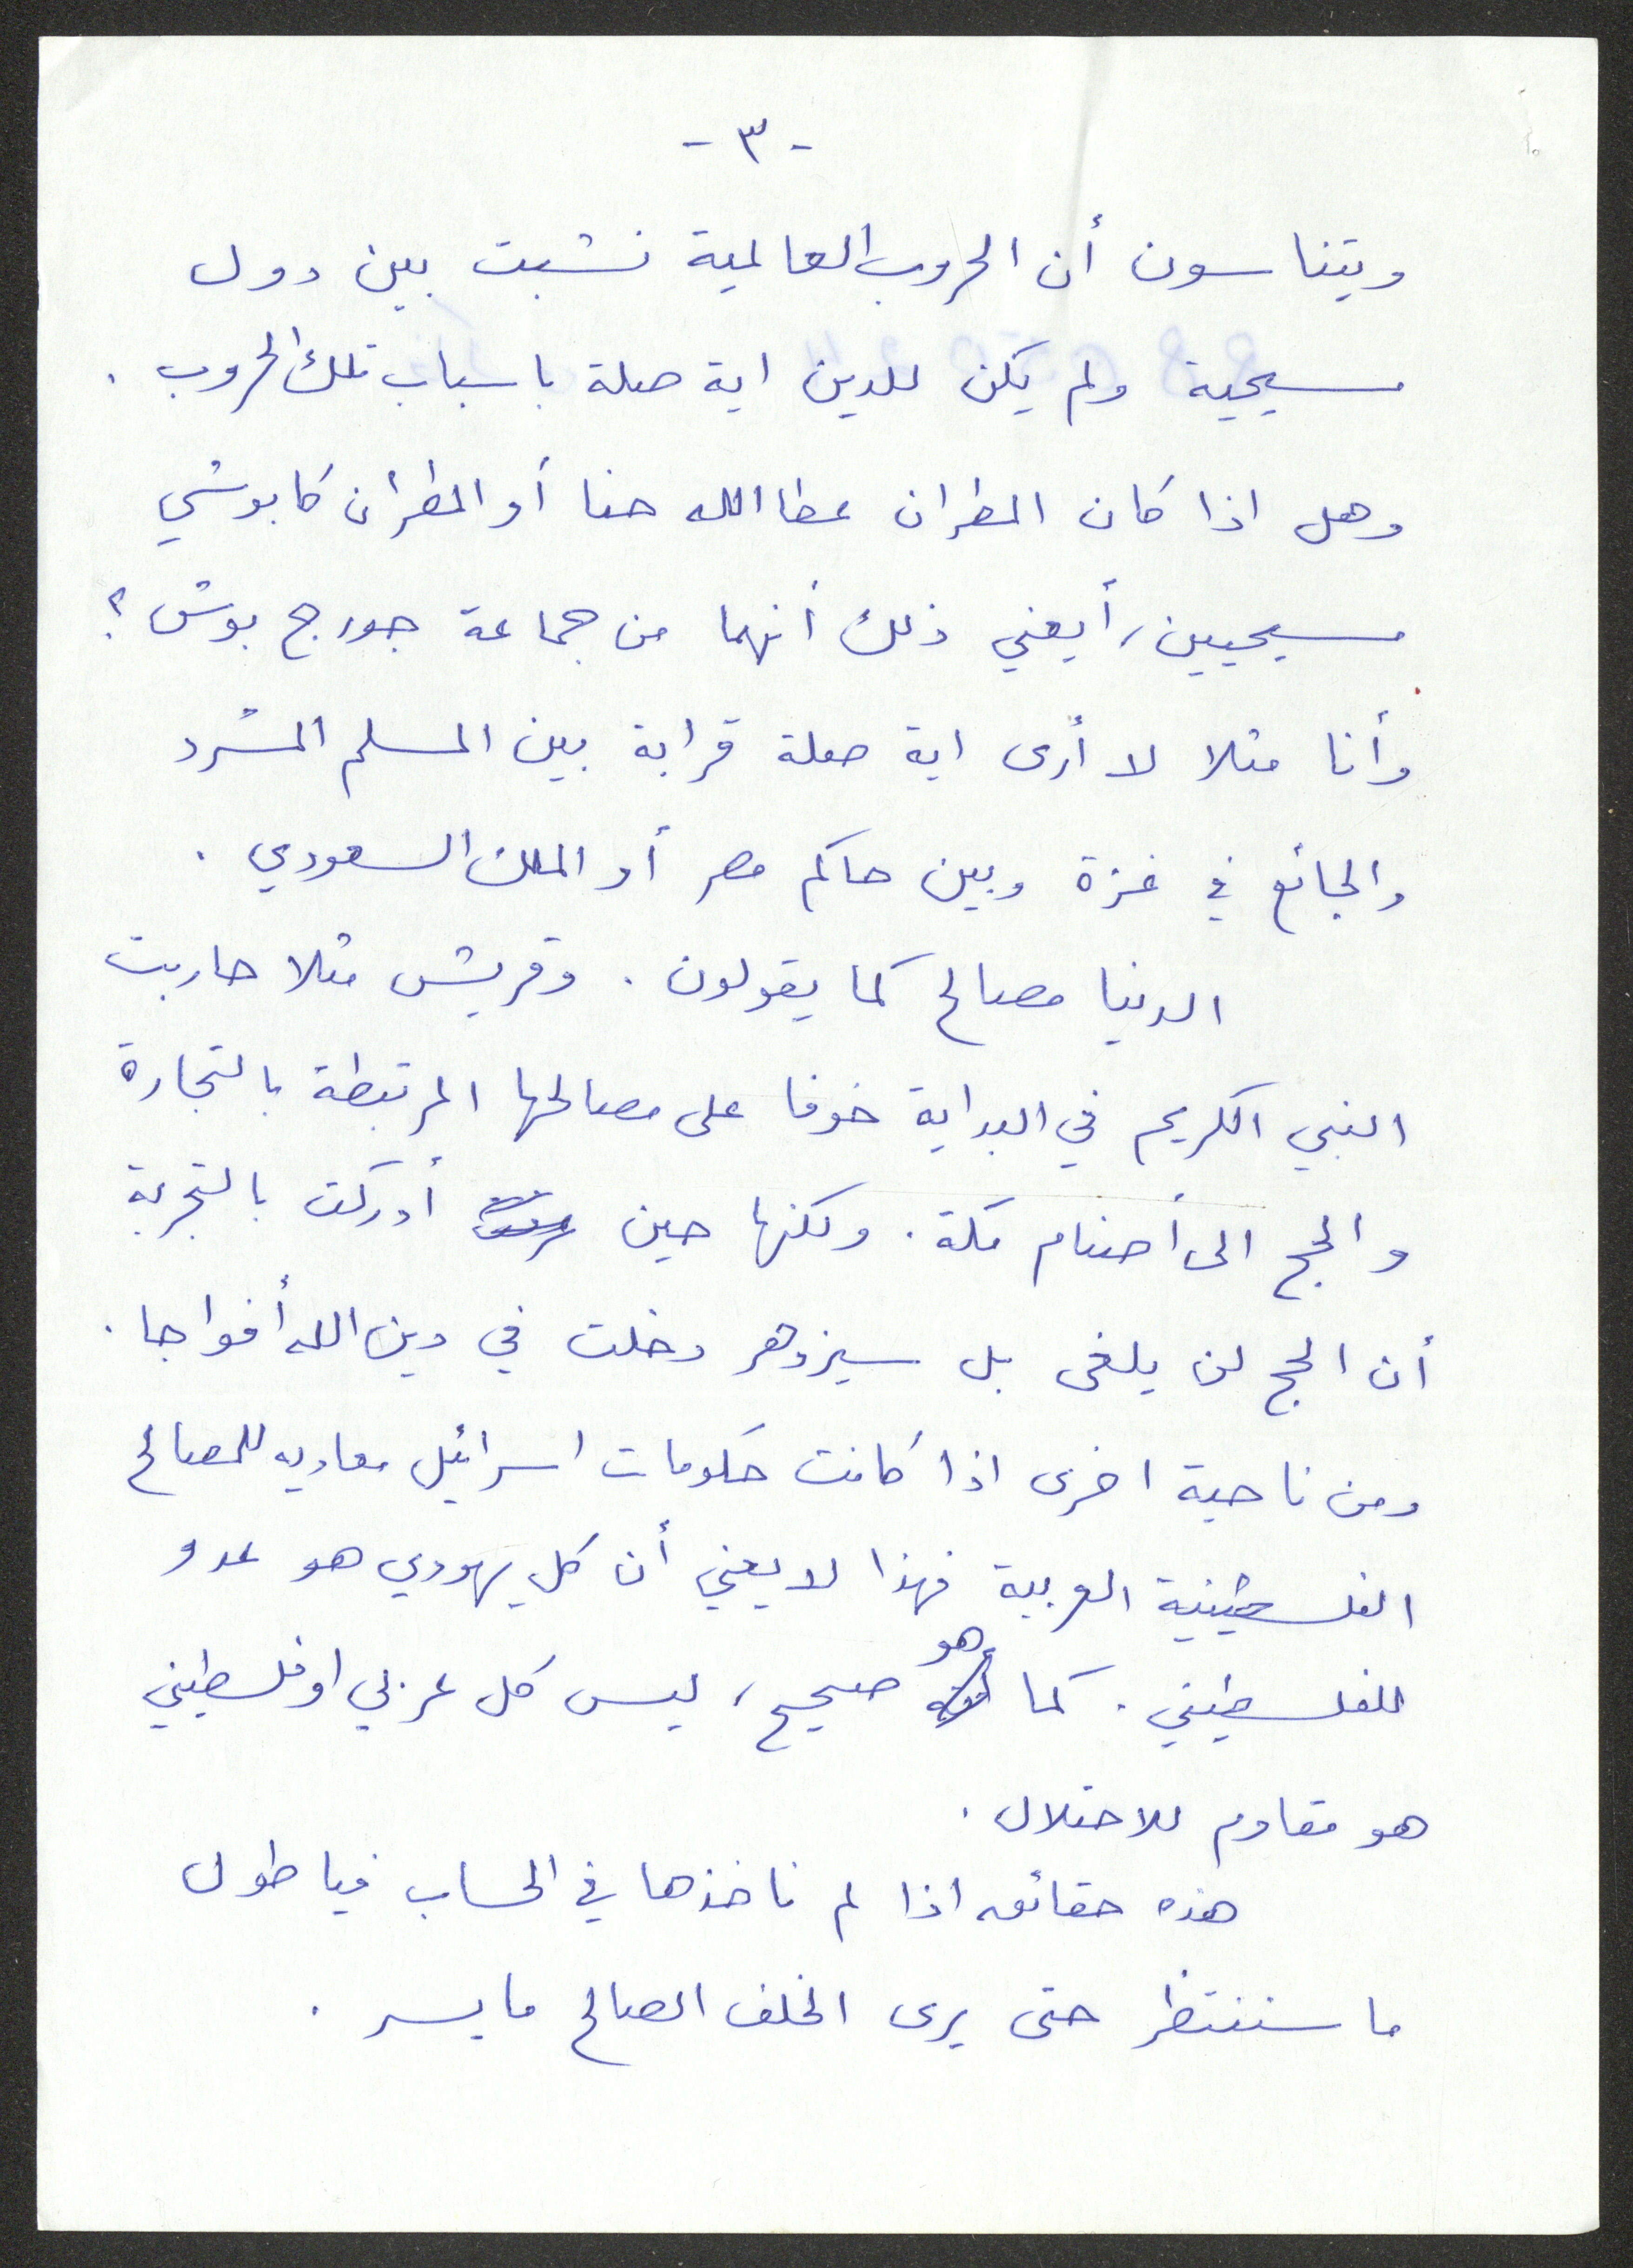 - ٣ -
ويتناسون أن الحروب العالمية نشبت بين دول
مسيحية ولم يكن للدين اية صلة باسباب تلك الحروب .
وهل اذا كان المطران عطاالله حنا أو المطران كابوشي
مسيحيين، أيعني ذلك أنهما من جماعة جورج بوش ؟
وأنا مثلا لا أرى اية صلة قرابة بين المسلم المشرد
والجائع في غزة وبين حاكم مصر أو الملك السعودي .
الدنيا مصالح كما يقولون . وقريش مثلا حاربت
النبي الكريم في البداية خوفا على مصالحها المرتبطة بالتجارة
والحج الى أصنام مكة . ولكنها حين أدركت بالتجربة
أن الحج لن يلغى بل سيزدهر دخلت في دين الله أفواجا .
ومن ناحية اخرى اذا كانت حكومات اسرائيل معاديه للمصالح
الفلسطينية العربية فهذا لا يعني أن كل يهودي هو عدو
للفلسطيني . كما هو صحيح، ليس كل عربي او فلسطيني
هو مقاوم للاحتلال .
هذه حقائق اذا لم ناخذها في الحساب فيا طول
ما سننتظر حتى يرى الخلف الصالح ما يسر .